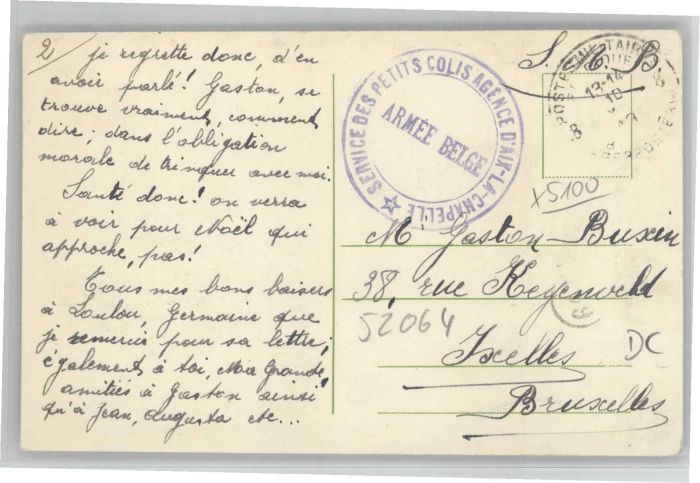 2/ je regrette donc, d'en
avoir parlé! Gaston, se
trouve vraiment, comment
dire; dans l'obligation
morale de trinquer avec moi.
Santé donc! on verra
à voir pour Noël qui
approche, pas!
Tous mes bons baisers
à Loulou, Germaine que
je remercie pour sa lettre;
également à toi, Ma Grande
amitiés à Gaston ainsi
qu'à Jean, Augusta etc...
SERVICE DES PETITS COLIS AGENCE D'AIX-LA-CHAPELLE
ARMÉE BELGE
S. M.
13-14
10
8
X5100
M Gaston Buxin
38, rue Keyenveld
52064
Ixelles
DC
Bruxelles